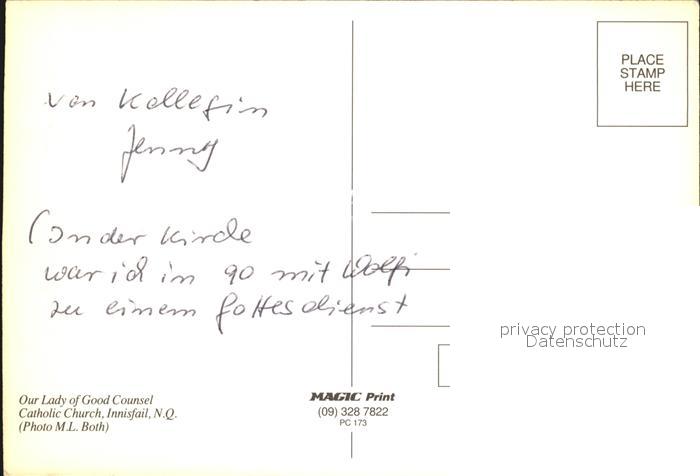 PLACE
STAMP
HERE
von Kollegin
Jenny
(In der Kirche
war ich in 90 mit Wolfi
zu einem Gottesdienst
privacy protection
Datenschutz
Our Lady of Good Counsel
Catholic Church, Innisfail, N.Q.
(Photo M.L. Both)
MAGIC Print
(09) 328 7822
PC 173